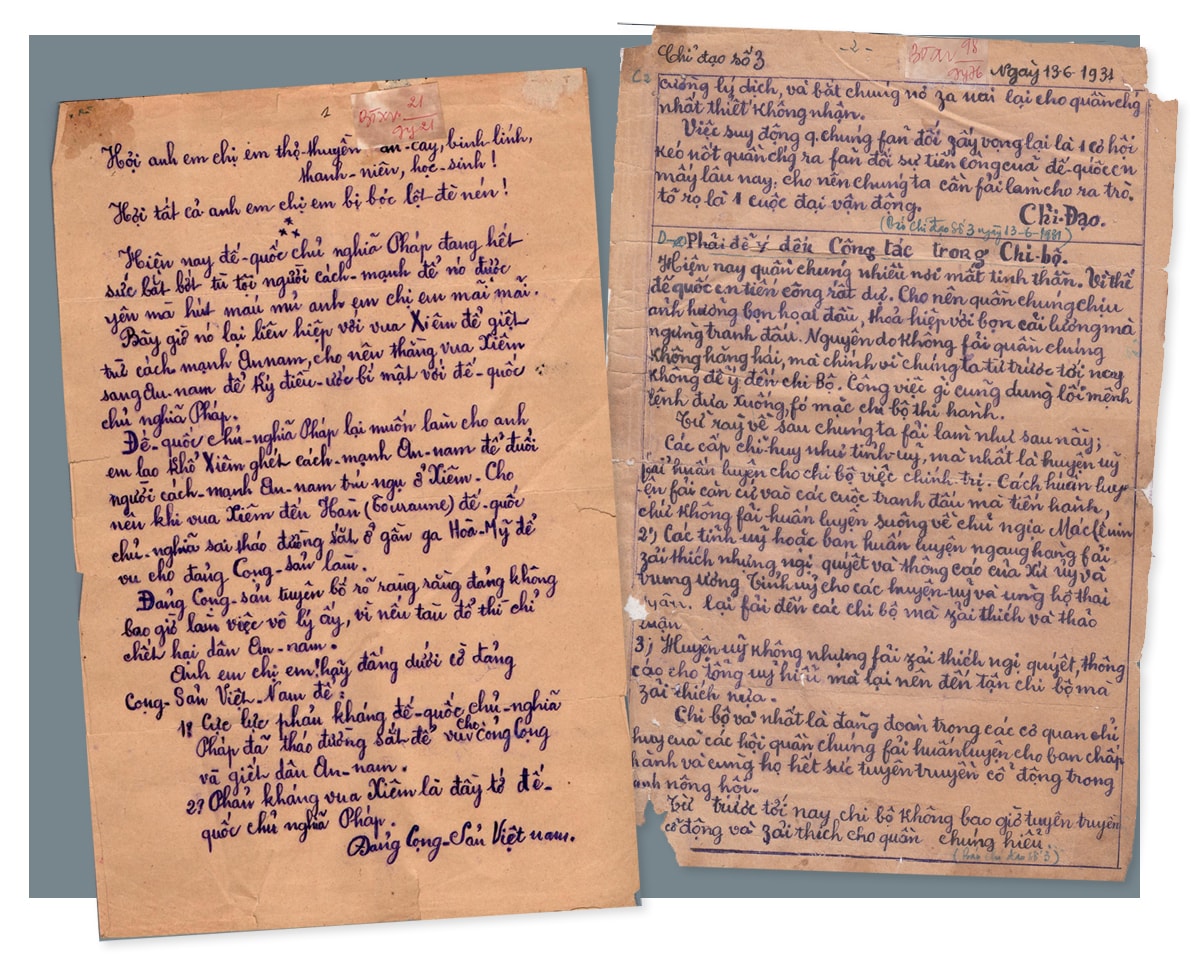 1
BTXV 21
gy 21
Hỡi anh em chị em thợ-thuyền cày, binh-lính,
thanh-niên, học-sinh!
Hỡi tất cả anh em chị em bị bóc lột đè nén!
Hiện nay đế-quốc chủ nghĩa Pháp đang hết
sức bắt bớt tù tội người cách-mạnh để nó được
yên mà hút máu mủ anh em chị em mãi mãi.
Bây giờ nó lại liên hiệp với vua Xiêm để giệt
trừ cách mạnh Annam, cho nên thằng vua Xiêm
sang An-nam để ký điều-ước bí mật với đế-quốc
chủ nghĩa Pháp.
Đế-quốc chủ-nghĩa Pháp lại muốn làm cho anh
em lao khổ Xiêm ghét cách-mạnh An-nam để đuổi
người cách-mạnh An-nam trú ngụ ở Xiêm. Cho
nên khi vua Xiêm đến Hàn (Tourane) đế-quốc
chủ-nghĩa sai tháo đường sắt ở gần ga Hoà-Mỹ để
vu cho đảng Cong-sản làm.
Đảng Cong-sản tuyên bố rõ ràng rằng đảng không
bao giờ làm việc vô lý ấy, vì nếu tàu đổ thì chỉ
chết hai dân An-nam.
Anh em chị em! hãy đứng dưới cờ đảng
Cọng-Sản Việt-Nam để:
1? Cực lực phản kháng đế-quốc chủ-nghĩa
Pháp đã tháo đường sắt để vu cho Cọng
và giết dân An-nam.
2? Phản kháng vua Xiêm là đầy tớ đế-
quốc chủ nghĩa Pháp.
Đảng Cọng-Sản Việt nam.
Chỉ đạo số 3
-2-
98
gy 76
Ngaỳ 13-6-1931
cường lý dịch, và bắt chúng nó za nài lại cho quần chg
nhất thiết không nhận.
Việc suy động q. chúng fản đối zấy vong lại là 1 cơ hội
kéo nốt quần chg ra fản đối sự tiến công của đế-quốc cn
mấy lâu nay; cho nên chúng ta cần fải làm cho ra trò.
tỏ rọ là 1 cuộc đại vận động.
Chỉ-Đạo.
(Báo chỉ đạo số 3 ngày 13-6-1931)
D- Phải để ý đến Công tác trong Chi-bộ.
Hiện nay quần chúng nhiều nơi mất tinh thần. Vì thế
đế quốc cn tiến công rất dự. Cho nên quần chung chịu
ảnh hưởng bọn hoạt đầu, thoả hiệp với bọn cải lương mà
ngừng tranh đấu. Nguyên do không fải quần chúng
không hăng hái, mà chính vì chúng ta từ trước tới nay
không để ý đến chi Bộ. Công việc gì cũng dùng lối mệnh
lệnh đưa xuống, fó mặc chi bộ thi hành.
Từ ray về sau chúng ta fải làm như sau này;
Các cấp chỉ-huy như tỉnh-uỷ, mà nhất là huyện uỷ
fải huấn luyện cho chi bộ việc chính-trị. Cách huấn luy-
ện fải căn cứ vào các cuộc tranh đấu mà tiến hành,
chứ không fải huấn luyện suông về chủ ngịa Mác Lênin
2) Các tỉnh uỷ hoặc ban huấn luyện ngang hang fải
zải thích những ngị quyết và thông cáo của Xứ ủy và
trung ương tỉnh uỷ cho các huyện-uỷ và ủng hộ
lại fải đến các chi bộ mà zải thích và thảo
luận
3) Huyện-uỷ không nhưng fải zải thích ngị quyết, thông
cáo cho tổng uỷ hiểu, mà lại nên đến tận chi bộ mà
zải thích nựa.
Chi bộ và nhất là đảng đoàn trong các cơ quan chỉ
huy của các hội quần chúng fải huấn luyện cho ban chấp
hành và cùng họ hết sức tuyên truyền cổ động trong
nông hội.
Từ trước tới nay chi bộ không bao giờ tuyên truyền
cổ động và zải thích cho quần chúng hiểu.
(Báo chỉ đạo số 3)